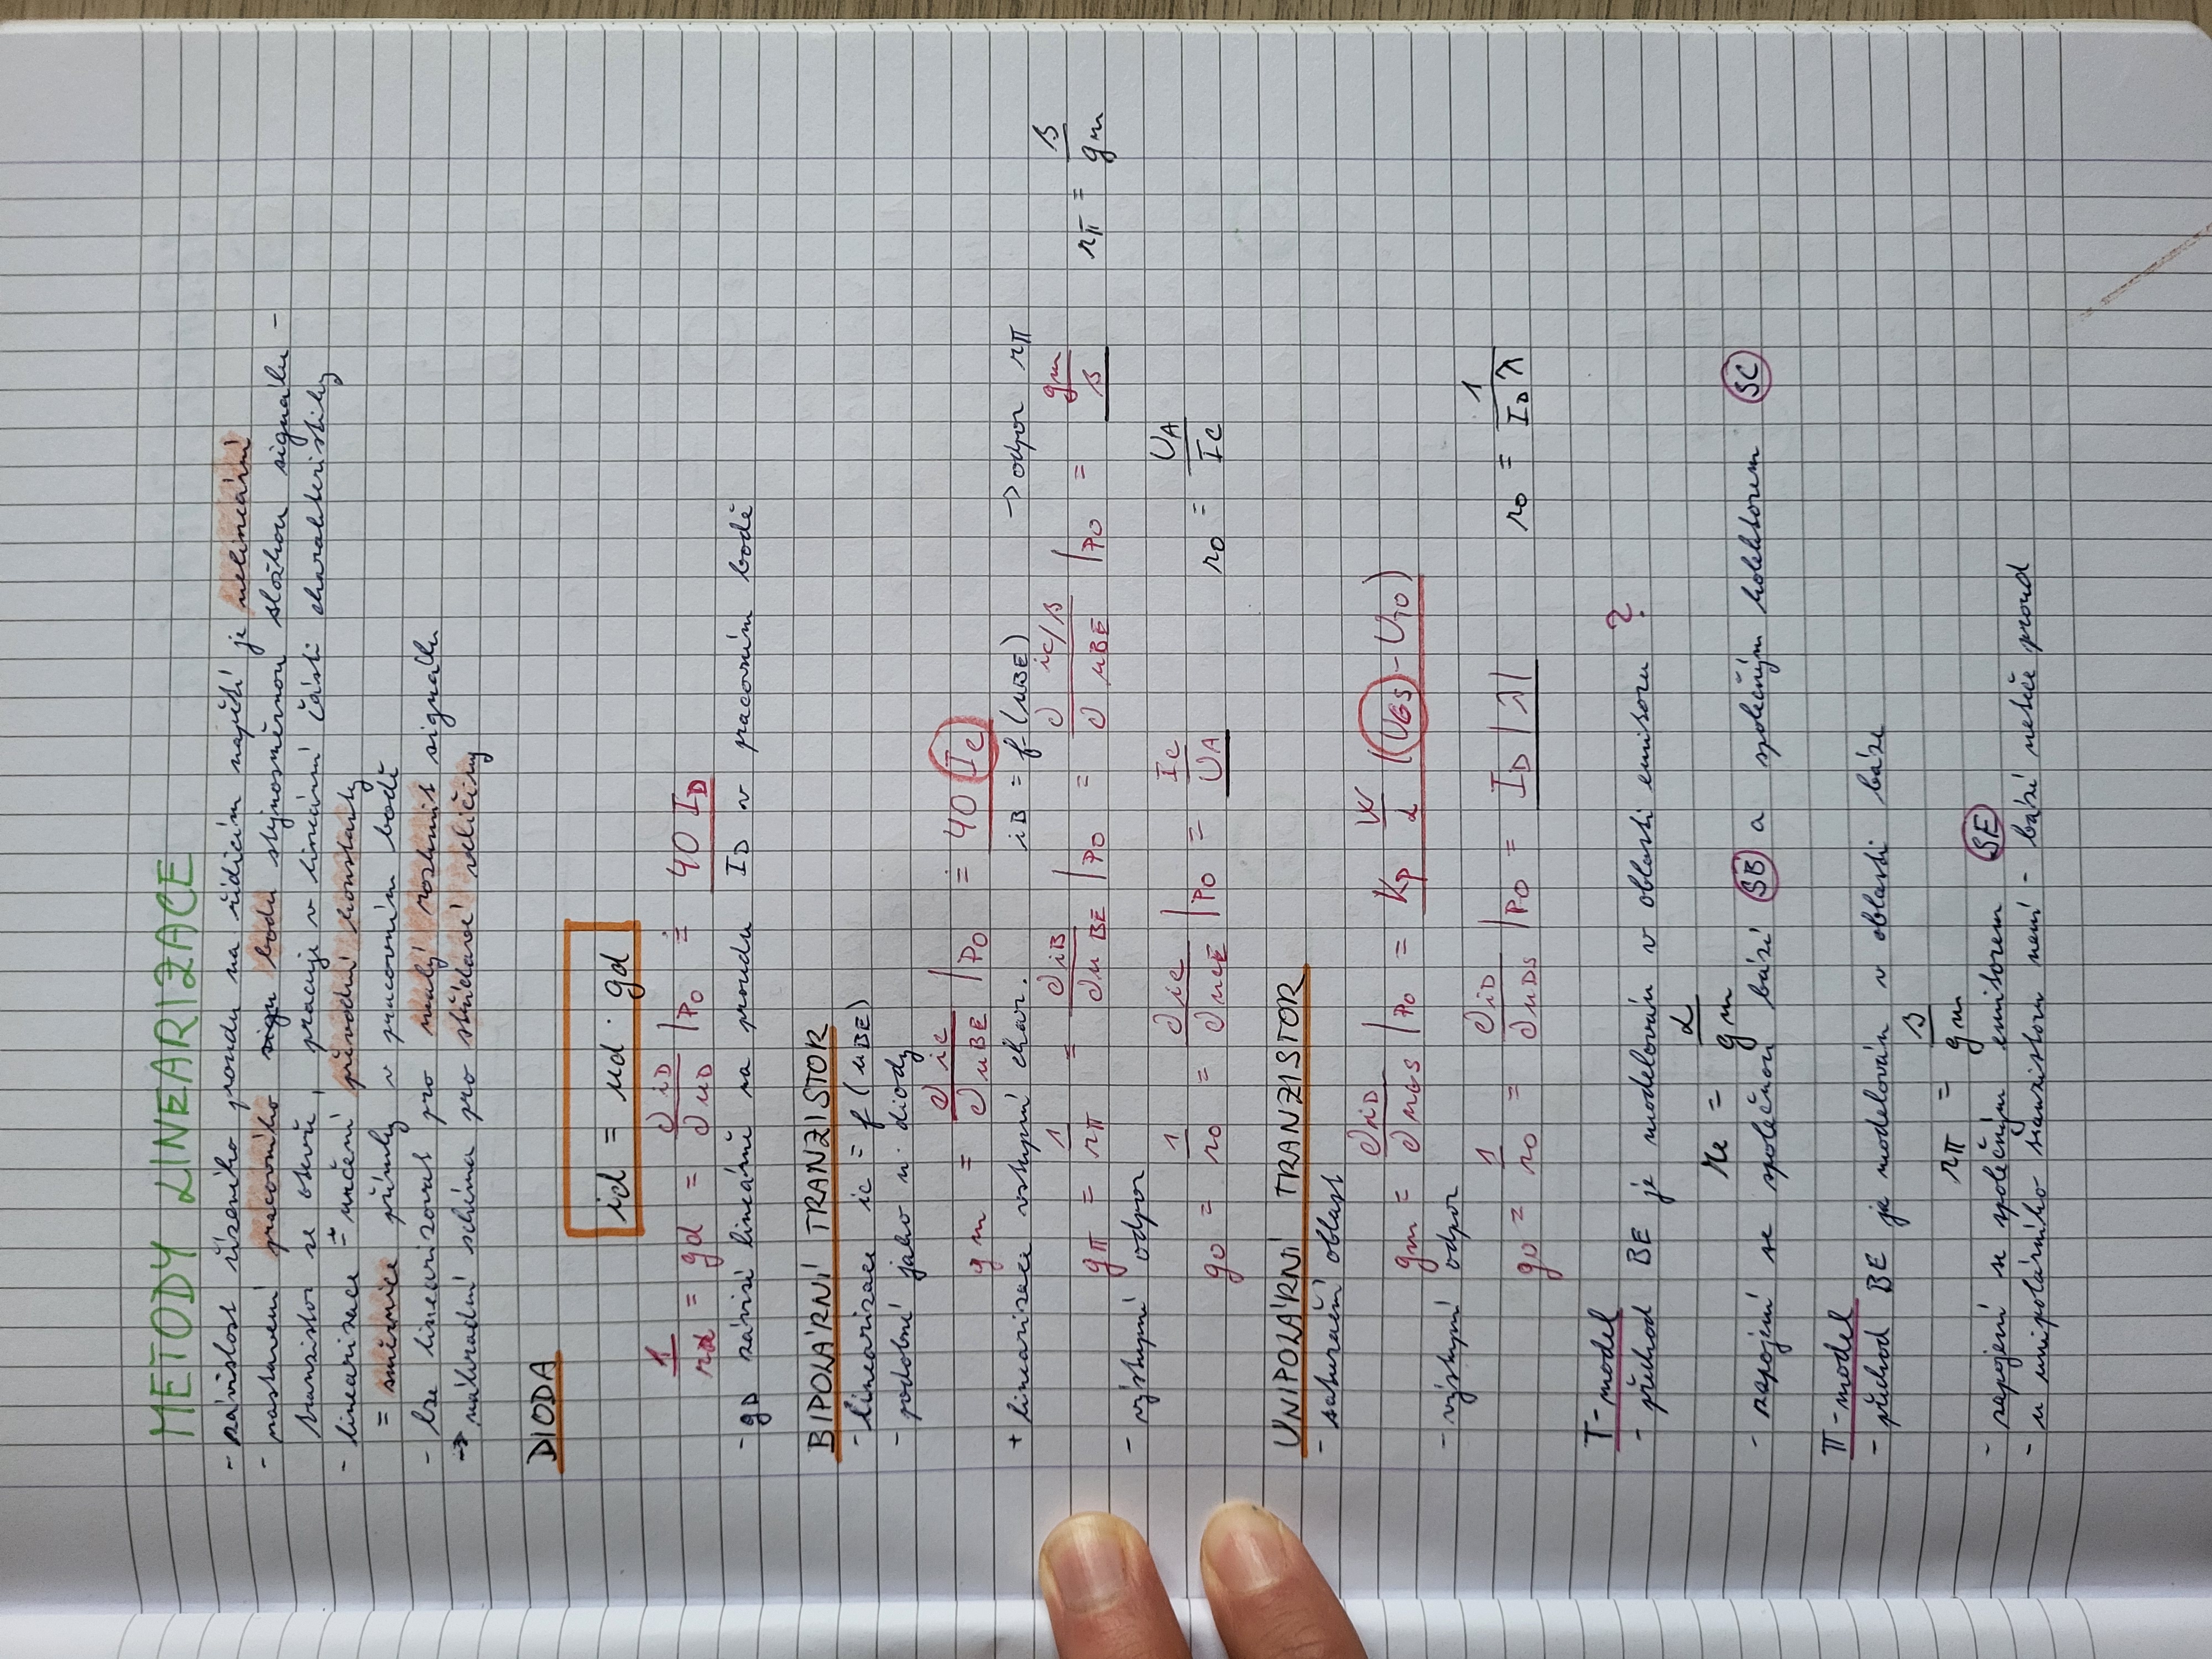 METODY LINEARIZACE
- závislost řízeného proudu na řídicím napětí je nelineární
- nastavení pracovního bodu stejnosměrnou složkou signálu -
tranzistor se otevře, pracuje v lineární části charakteristiky
- linearizace = určení převodní konstanty
= směrnice přímky v pracovním bodě
- lze linearizovat pro malý rozkmit signálu
→ náhradní schéma pro střídavé veličiny
DIODA
id = ud · gd
1/rd = gd = ∂iD/∂uD |P0 ≐ 40 ID
- gD závisí lineárně na proudu ID v pracovním bodě
BIPOLÁRNÍ TRANZISTOR
- linearizace ic = f(uBE)
- podobné jako u diody
gm = ∂ic/∂uBE |P0 ≐ 40 Ic
+ linearizace vstupní char. iB = f(uBE) → odpor rπ
gπ = 1/rπ = ∂iB/∂uBE |P0 = ∂ ic/β / ∂uBE |P0 = gm/β rπ = β/gm
- výstupní odpor
g0 = 1/r0 = ∂ic/∂ucE |P0 = Ic/UA r0 = UA/Ic
UNIPOLÁRNÍ TRANZISTOR
- saturační oblast
gm = ∂iD/∂uGS |P0 = Kp W/L (UGS - UT0)
- výstupní odpor
g0 = 1/r0 = ∂iD/∂uDS |P0 = ID |λ| r0 = 1/IDλ
T-model
- přechod BE je modelován v oblasti emitoru ?
re = α/gm
- zapojení se společnou bází SB a společným kolektorem SC
π-model
- přechod BE je modelován v oblasti báze
rπ = β/gm
- zapojení se společným emitorem SE
- u unipolárního tranzistoru není - bází neteče proud